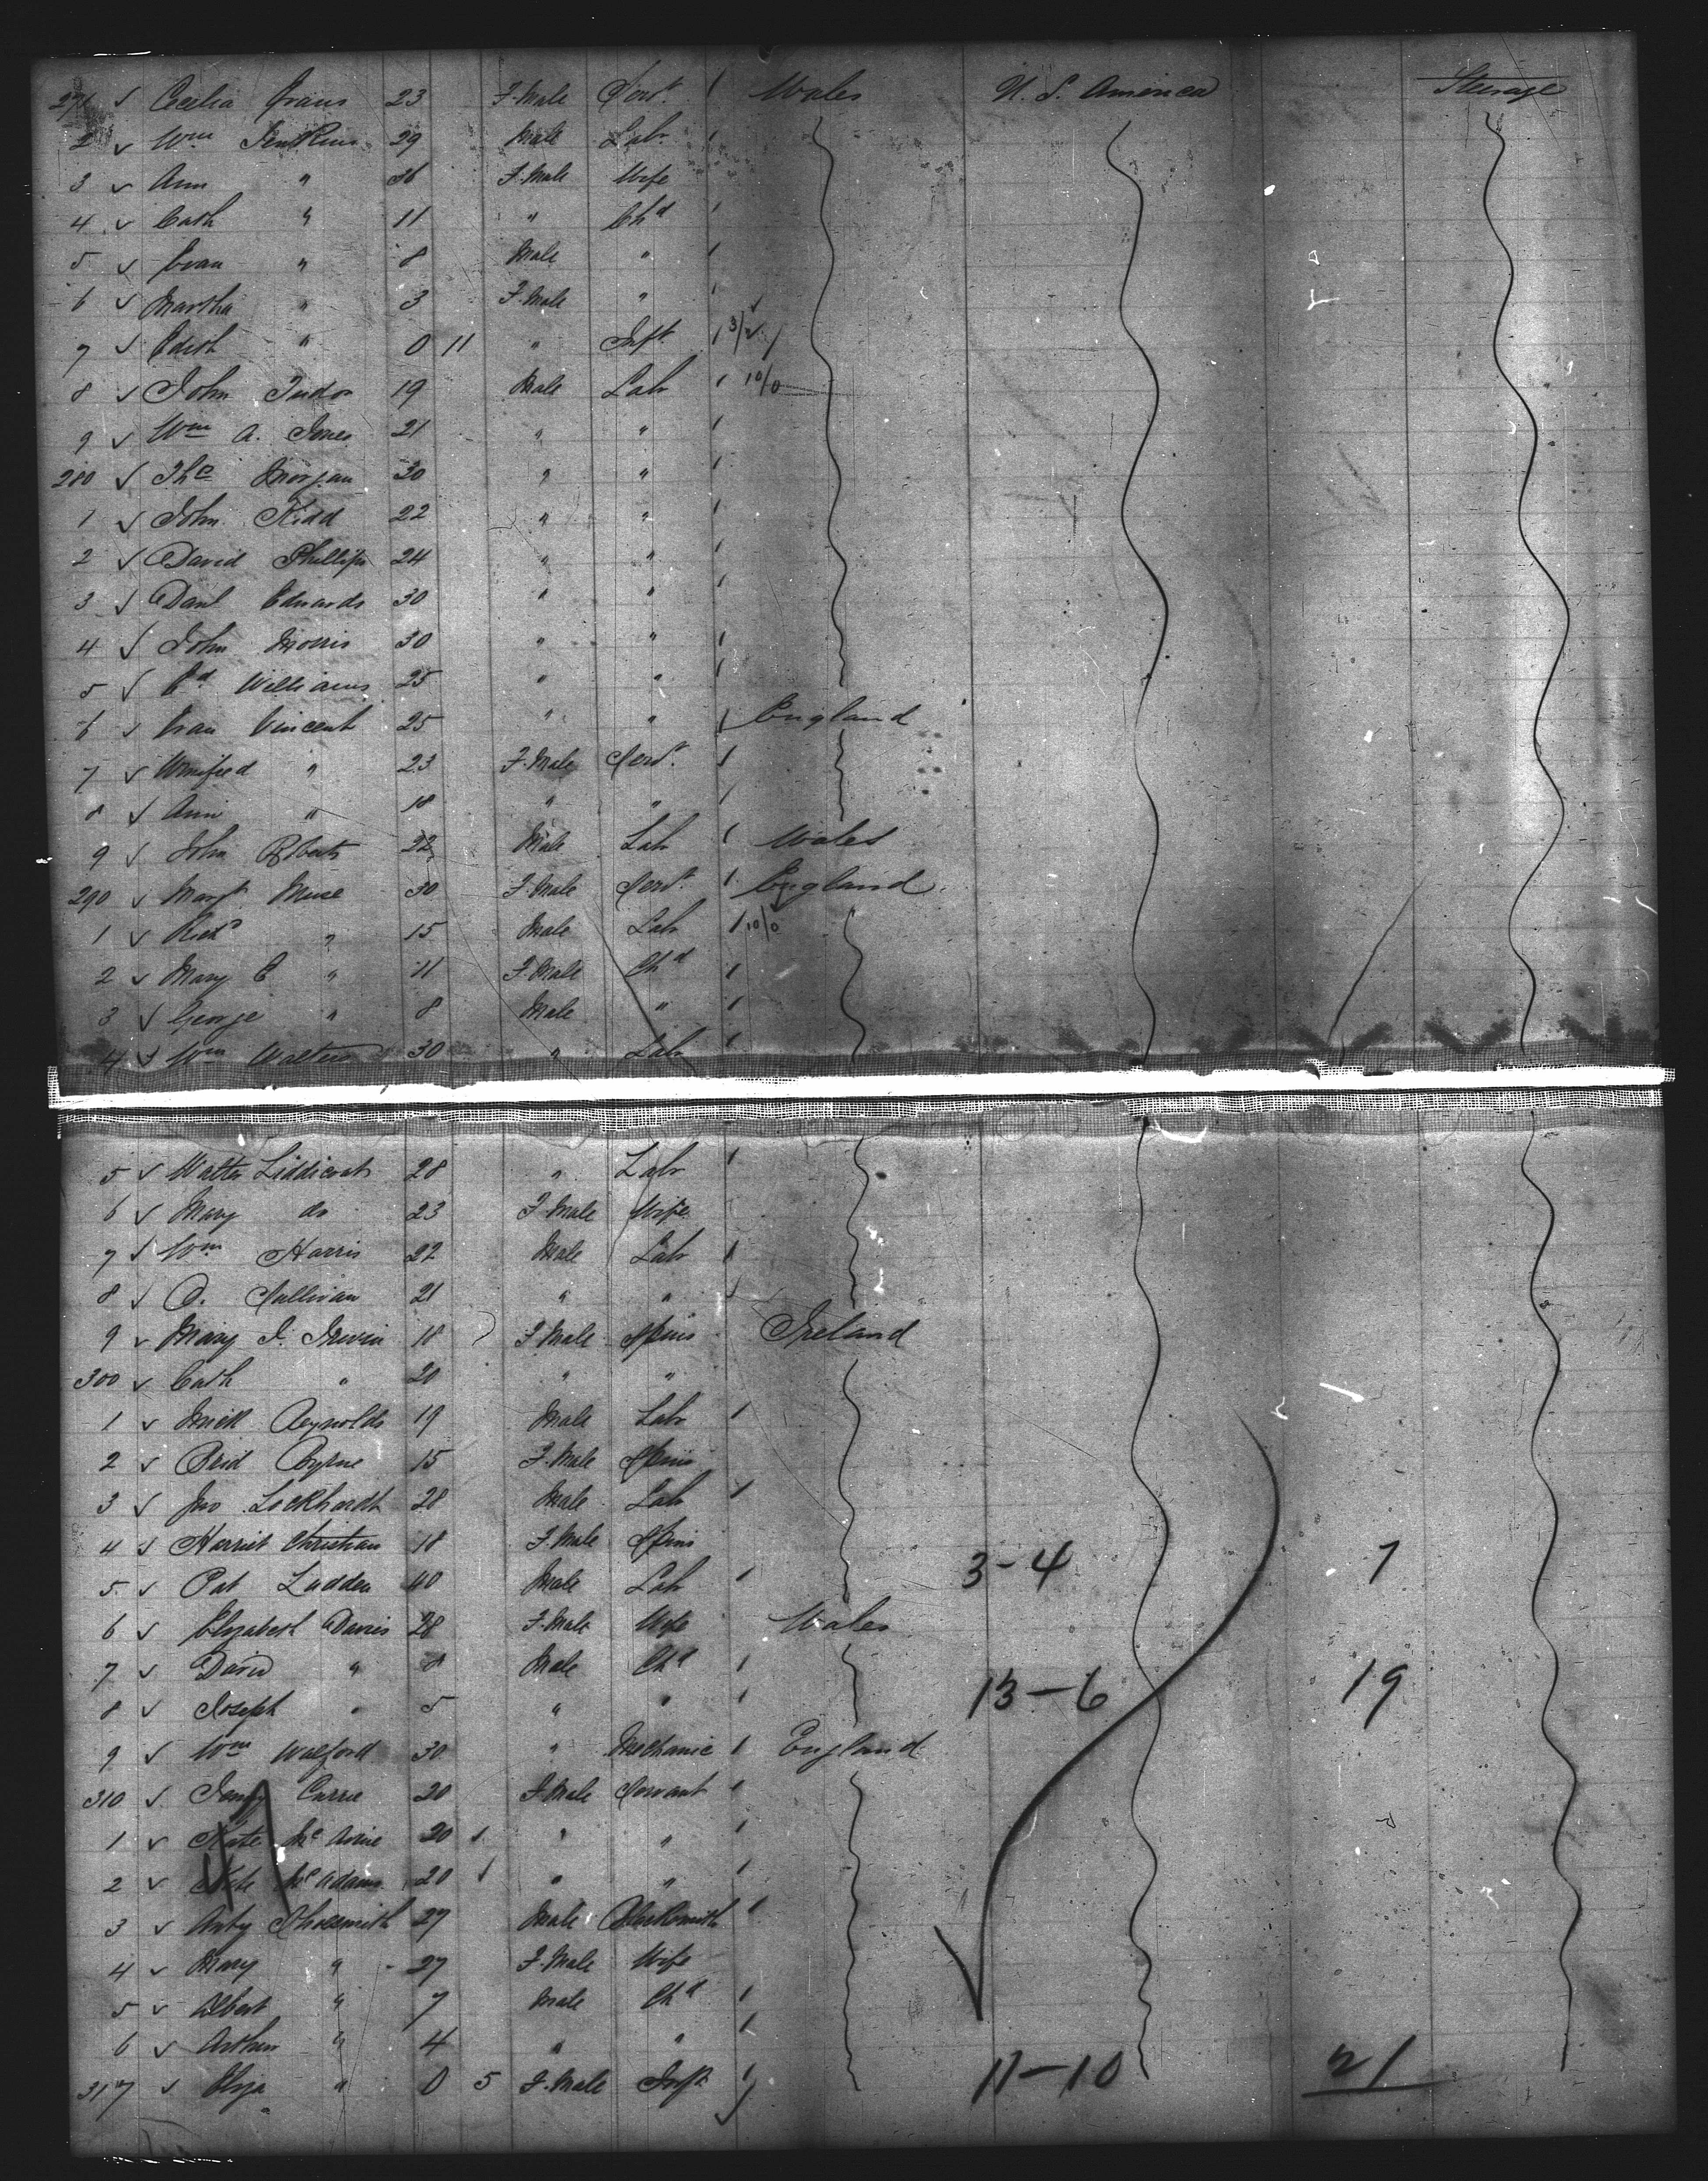 271 ✓ Cecilia Evans 23 F.Male Servt / Wales U. S. America Steerage
2 ✓ Wm Jenkins 29 Male Labr /
3 ✓ Ann " 36 F.Male Wife
4 ✓ Cath " 11 " Chd /
5 ✓ Evan " 8 Male " /
6 ✓ Martha " 3 F.Male " /
7 ✓ Edith " 0 11 " Inft / 3/2 /
8 ✓ John Tudor 19 Male Labr / 10/0
9 ✓ Wm A. Jones 21 " " /
280 ✓ Tho Morgan 30 " " /
1 ✓ John Kidd 22 " " /
2 ✓ David Phillips 24 " " /
3 ✓ Danl Edwards 30 " " /
4 ✓ John Morris 30 " " /
5 ✓ Ed Williams 25 " " /
6 ✓ Vincent 25 " " / England
7 ✓ Winifred " 23 F.Male Servt. /
8 ✓ Ann " 18 " " /
9 ✓ John Roberts 22 Male Lab / Wales
290 ✓ Margt Muse 30 F.Male Servt. / England
1 ✓ Richd " 15 Male Lab / 10/0
2 ✓ Mary E " 11 F.Male Chd /
3 ✓ George " 8 Male " /
4 ✓ Wm Walters 30 " Labr /
5 ✓ Walter Liddicoat 28 " Labr /
6 ✓ Mary do 23 F.Male Wife
7 ✓ Wm Harris 22 Male Labr /
8 ✓ Sullivan 21 " " /
9 ✓ Mary J. Irwin 18 F.Male Spins Ireland
300 ✓ Cath " 20 " "
1 ✓ Mich Reynolds 19 Male Labr /
2 ✓ Brid Byrne 15 F.Male Spins
3 ✓ Jno Lockhardt 28 Male Labr /
4 ✓ Harriet Christian 18 F.Male Spins 3-4 7
5 ✓ Pat Ludden 40 Male Labr /
6 ✓ Elizabeth Davies 28 F.Male Wife Wales
7 ✓ David " 8 Male Chd / 13-6 19
8 ✓ Joseph " 5 " " /
9 ✓ Wm Walford 30 " Mechanic / England
310 ✓ Jenny Currie 20 F.Male Servant /
1 ✓ Kate 20 " " /
2 ✓ Kate McAdams 20 " " /
3 ✓ 27 Male Blacksmith /
4 ✓ Mary " 27 F.Male Wife
5 ✓ Albert " 7 Male Chd /
6 ✓ Arthur " 4 " " /
317 ✓ Eliza " 0 5 F.Male Inft / 11-10 21